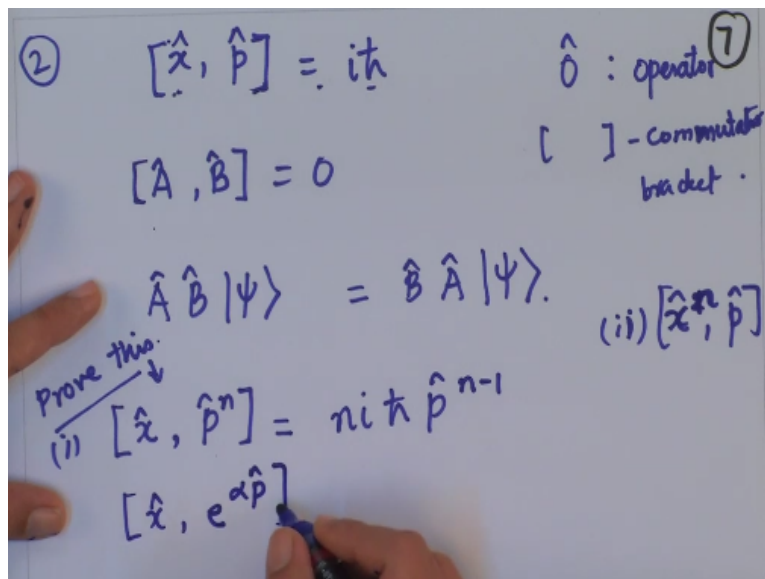 ② [x̂, p̂] = iħ
⑦
Ô : operator
[ ] - commutator
bracket .
[Â , B̂] = 0
Â B̂ |ψ⟩ = B̂ Â |ψ⟩.
(ii) [x̂ⁿ, p̂]
Prove this.
(i) [x̂ , p̂ⁿ] = n i ħ p̂ ⁿ⁻¹
[x̂ , e^αp̂]